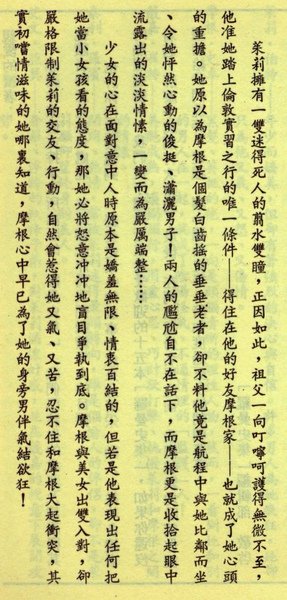 茱莉擁有一雙迷得死人的翦水雙瞳，正因如此，祖父一向叮嚀呵護得無微不至，
他准她踏上倫敦實習之行的唯一條件——得住在他的好友摩根家——也就成了她心頭
的重擔。她原以為摩根是個髮白齒搖的垂垂老者，卻不料他竟是航程中與她比鄰而坐
、令她怦然心動的俊挺、瀟灑男子！兩人的尷尬自不在話下，而摩根更是收拾起眼中
流露出的淡淡情愫，一變而為嚴厲端整……
少女的心在面對意中人時原本是嬌羞無限、情衷百結的，但若是他表現出任何把
她當小女孩看的態度，那她必將怒意冲冲地盲目爭執到底。摩根與美女出雙入對，卻
嚴格限制茱莉的交友、行動，自然會惹得她又氣、又苦，忍不住和摩根大起衝突，其
實初嚐情滋味的她哪裏知道，摩根心中早已為了她的身旁男伴氣結欲狂！